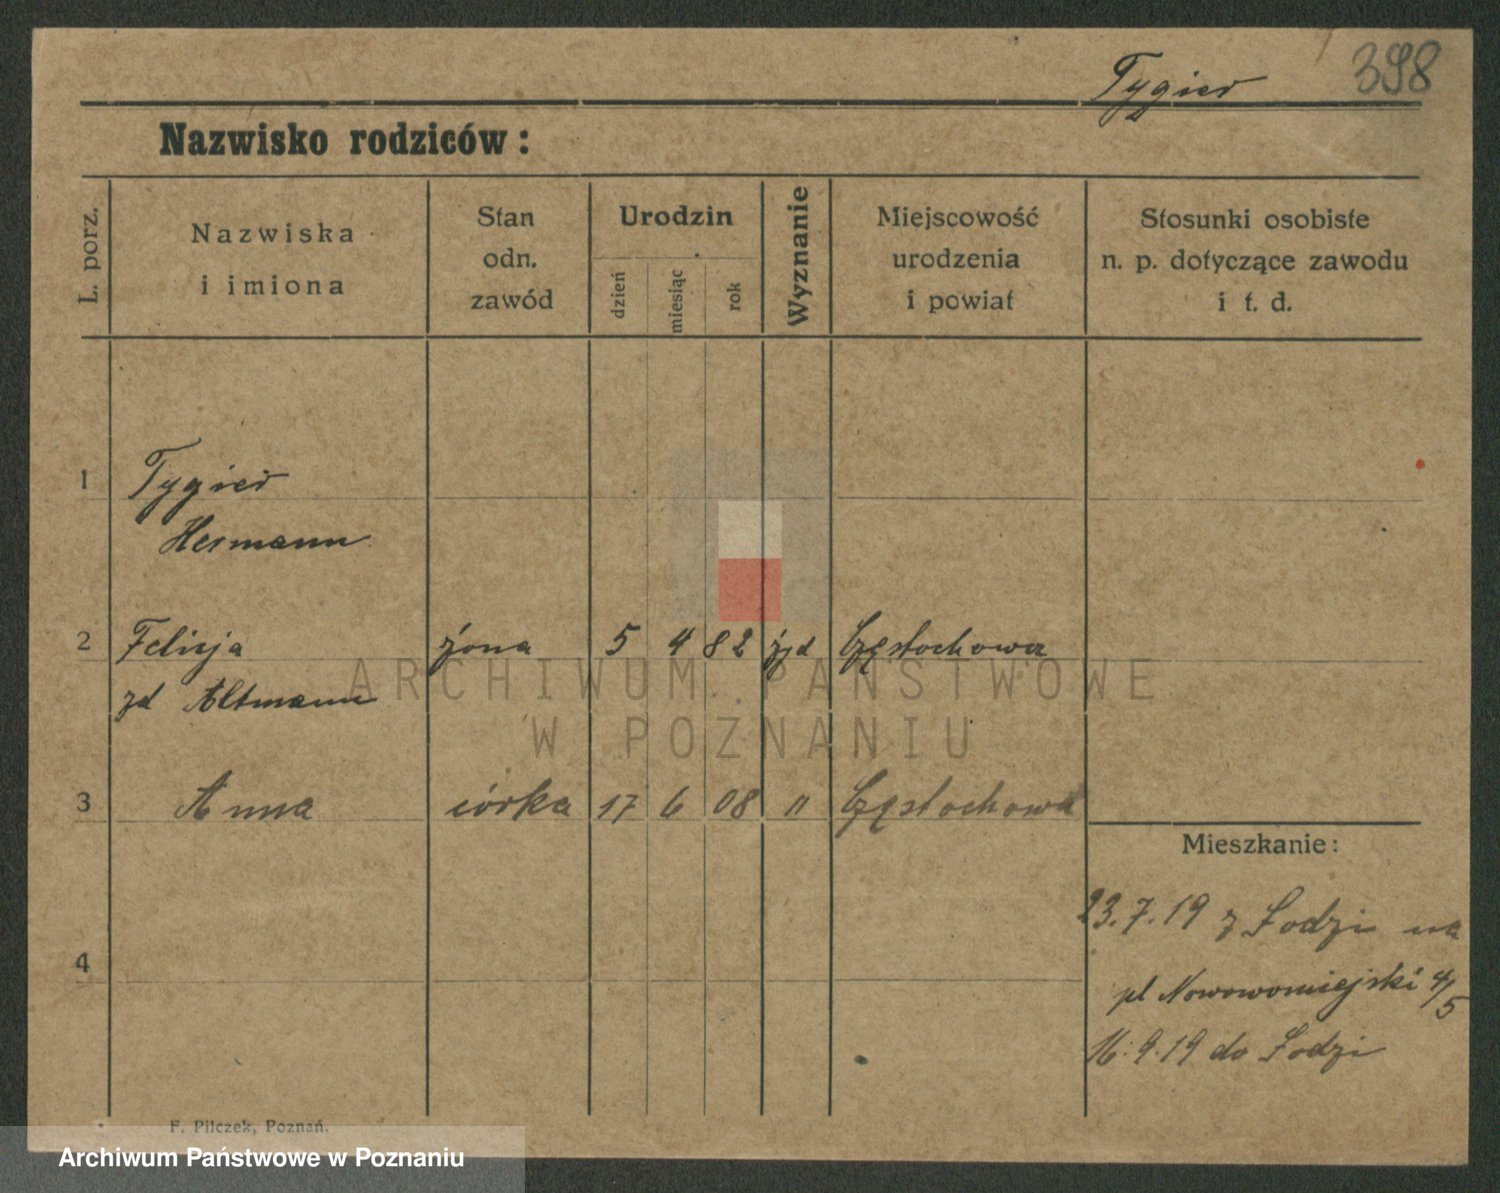 Tygier 398
Nazwisko rodziców:
L. porz.
Nazwiska
i imiona
Stan
odn.
zawód
Urodzin
dzień
miesiąc
rok
Wyznanie
Miejscowość
urodzenia
i powiat
Stosunki osobiste
n. p. dotyczące zawodu
i t. d.
1 Tygier
Hermann
2 Felicja żona 5 4 82 żyd Częstochowa
zd Altmann
ARCHIWUM PAŃSTWOWE
W POZNANIU
3 Anna córka 17 6 08 " Częstochowa
Mieszkanie:
23.7.19 z Łodzi na
4
pl Nowowomiejski 4/5
16.9.19 do Łodzi
F. Pilczek, Poznań.
Archiwum Państwowe w Poznaniu